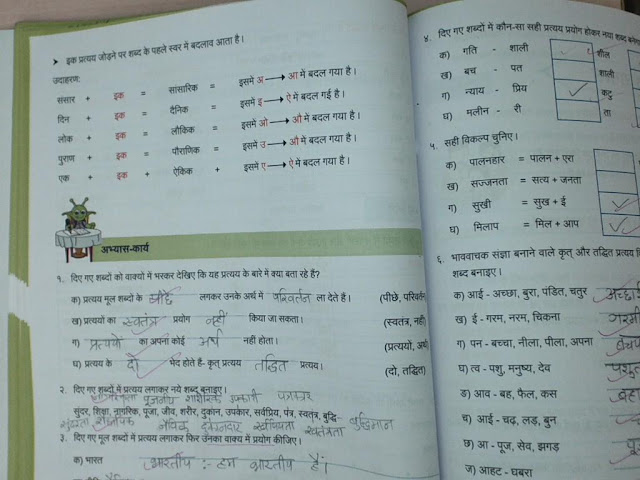 ➤ इक प्रत्यय जोड़ने पर शब्द के पहले स्वर में बदलाव आता है।
उदाहरण:
संसार + इक = सासारिक = इसमें अ ⟶ आ में बदल गया है।
दिन + इक = दैनिक = इसमें इ ⟶ ऐ में बदल गई है।
लोक + इक = लौकिक = इसमें ओ ⟶ औ में बदल गया है।
पुराण + इक = पौराणिक = इसमें उ ⟶ औ में बदल गया है।
एक + इक + ऐकिक + इसमें ए ⟶ ऐ में बदल गया है।
अभ्यास-कार्य
१. दिए गए शब्दों को वाक्यों में भरकर देखिए कि यह प्रत्यय के बारे में क्या बता रहे हैं?
क) प्रत्यय मूल शब्दों के पीछे लगकर उनके अर्थ में परिवर्तन ला देते हैं। (पीछे, परिवर्तन
ख) प्रत्ययों का स्वतंत्र प्रयोग नहीं किया जा सकता। (स्वतंत्र, नहीं)
ग) प्रत्ययों का अपना कोई अर्थ नहीं होता। (प्रत्ययों, अर्थ
घ) प्रत्यय के दो भेद होते हैं- कृत् प्रत्यय तद्धित प्रत्यय। (दो, तद्धित)
२. दिए गए शब्दों में प्रत्यय लगाकर नये शब्द बनाइए।
नागरिकता पूजनीय शारीरिक उपकारी पत्रकार
सुंदर, शिक्षा, नागरिक, पूजा, जीव, शरीर, दुकान, उपकार, सर्वप्रिय, पंत्र, स्वतंत्र, बुद्धि-
सुंदरता दुकानदार स्वतंत्रता बुद्धिमान
३. दिए गए मूल शब्दों में प्रत्यय लगाकर फिर उनका वाक्य में प्रयोग कीजिए।
क) भारत भारतीय :- हम भारतीय हैं।
४. दिए गए शब्दों में कौन-सा सही प्रत्यय प्रयोग होकर नया शब्द
क) गति - शाली शील
ख) बच - पत शाली
ग) न्याय - प्रिय ✓ कटु
घ) मलीन - री ता
५. सही विकल्प चुनिए।
क) पालनहार = पालन + एरा
ख) सज्जनता = सत्य + जनता
ग) सुखी = सुख + ई ✓
घ) मिलाप = मिल + आप ✓
६. भाववाचक संज्ञा बनाने वाले कृत् और तद्धित प्रत्यय
शब्द बनाइए।
क) आई - अच्छा, बुरा, पंडित, चतुर अच्छाई
ख) ई - गरम, नरम, चिकना गरमी
ग) पन - बच्चा, नीला, पीला, अपना
घ) त्व - पशु, मनुष्य, देव
ङ) आव - बह, फैल, कस
च) आई - चढ़, लड़, बुन
छ) आ - पूज, सेव, झगड़
ज) आहट - घबरा